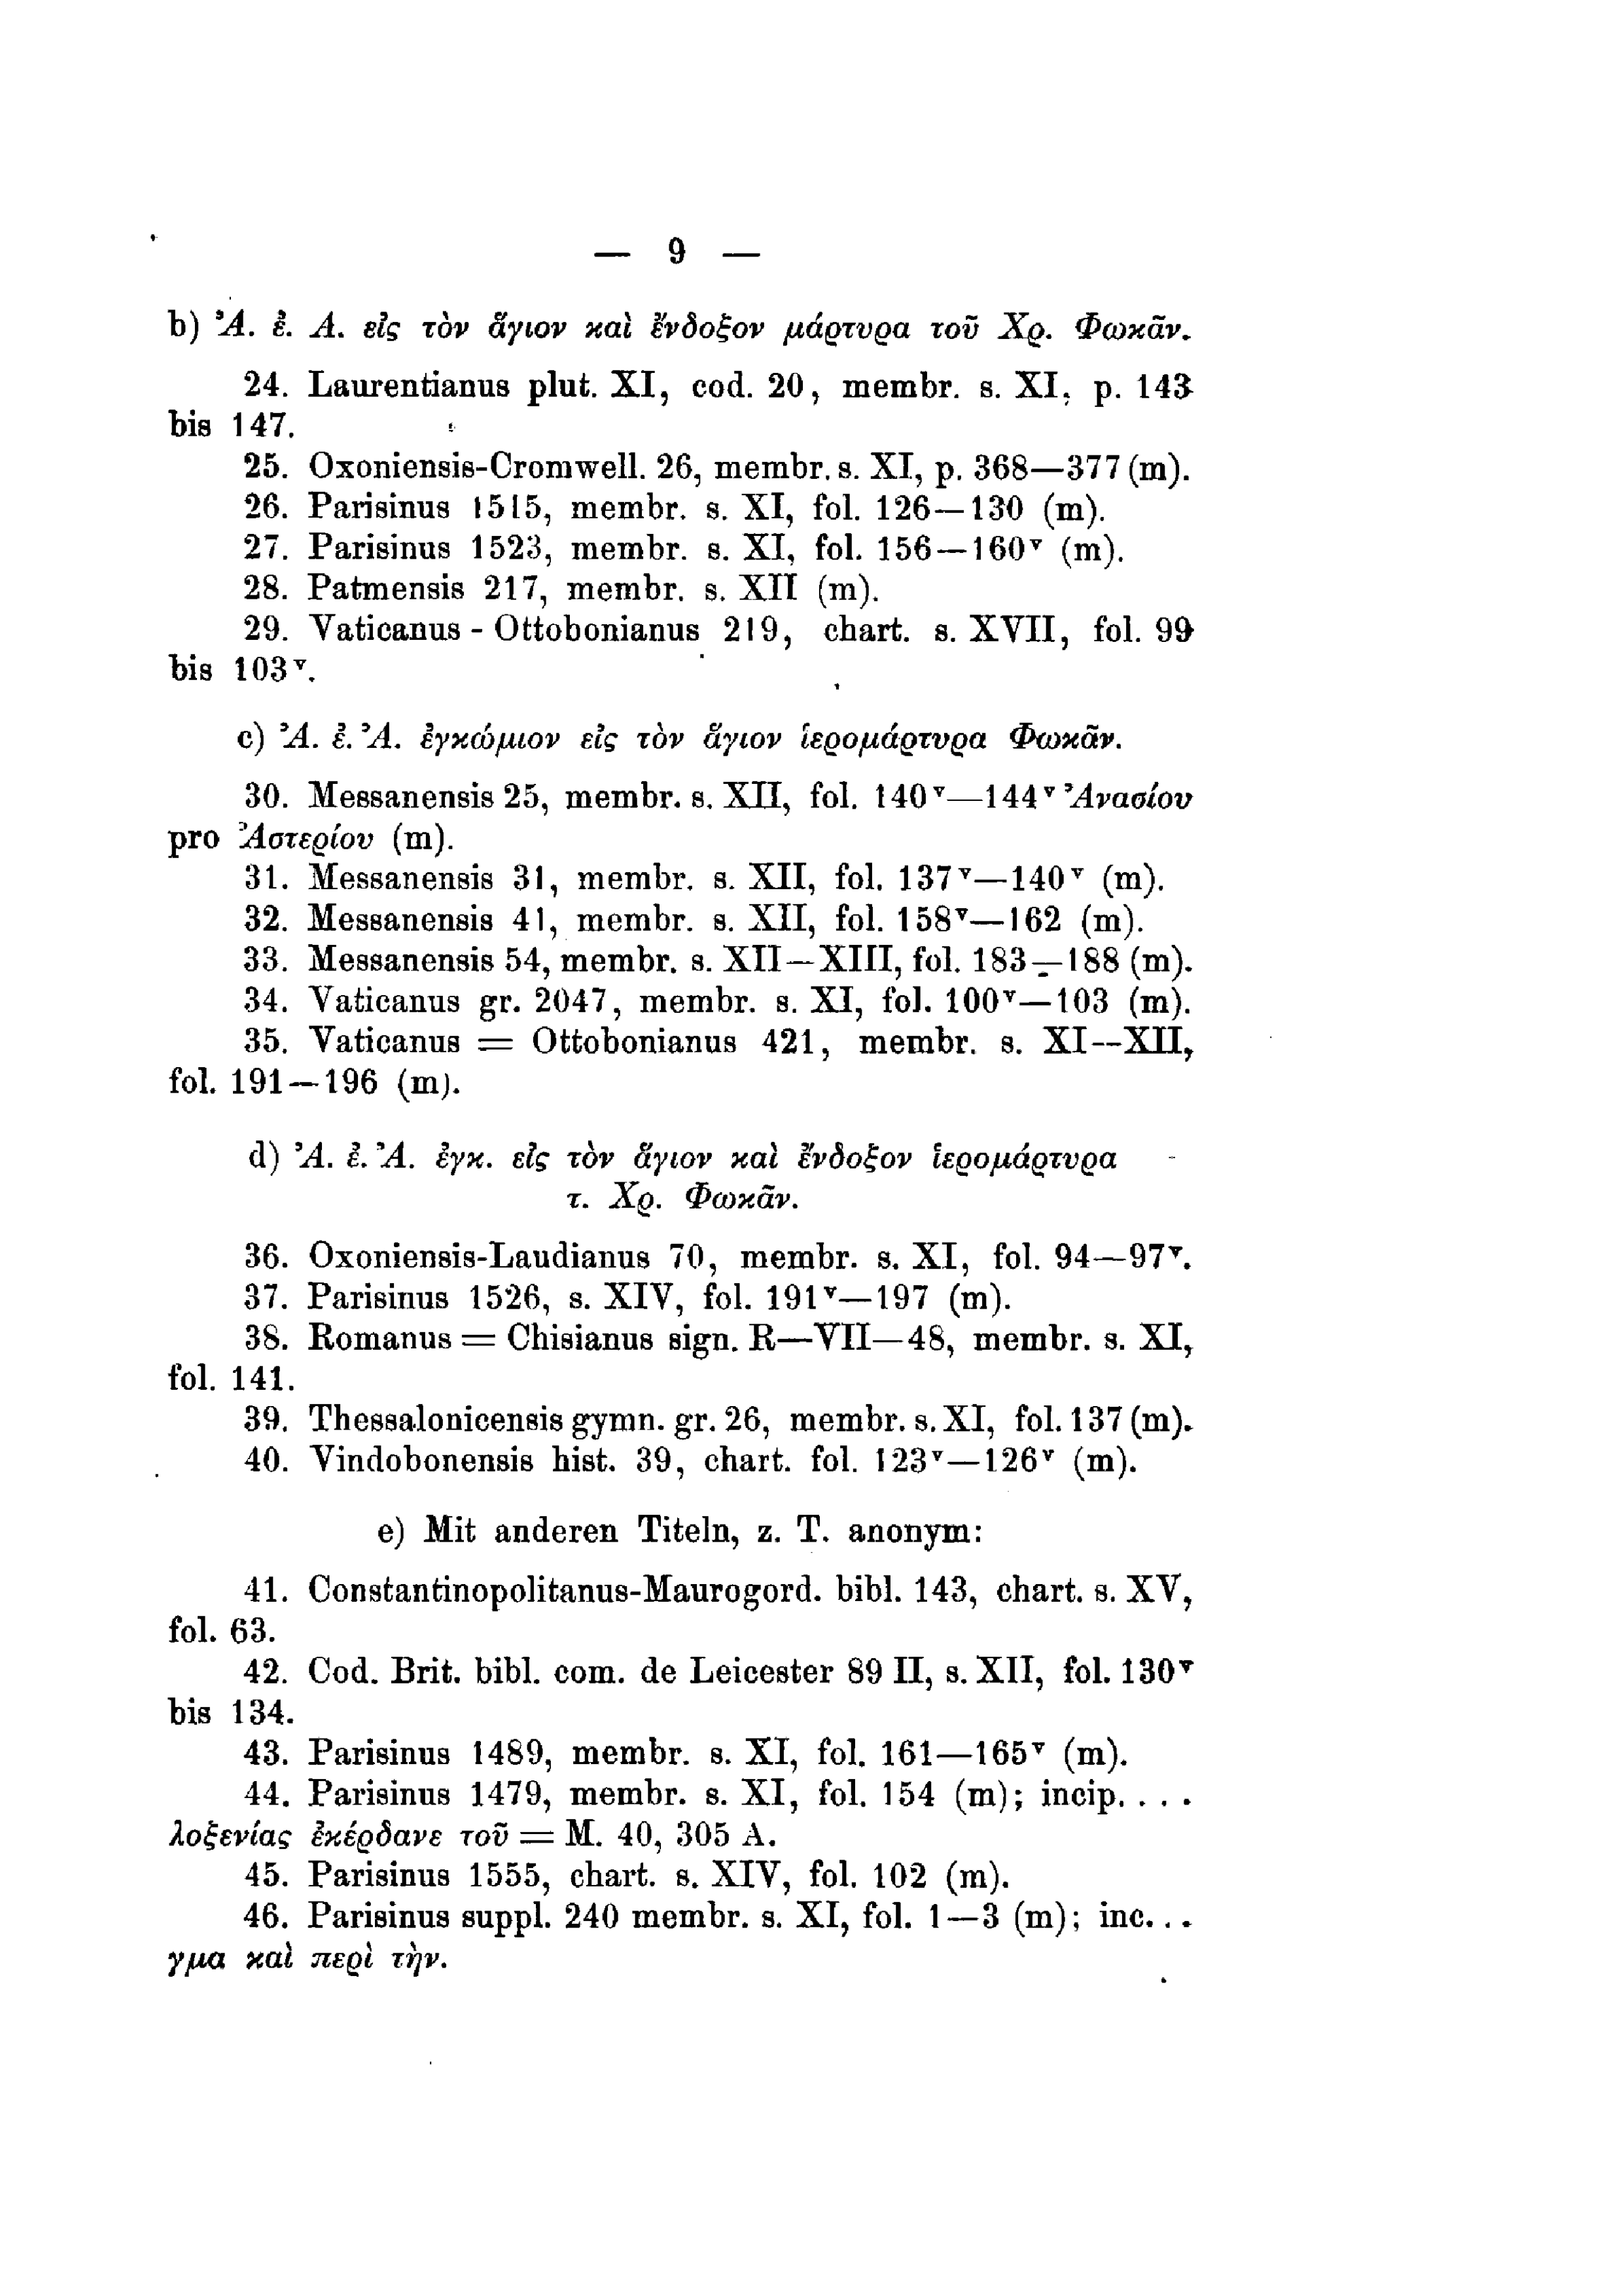 — 9 —
b) Ἀ. ἐ. Α. εἰς τὸν ἅγιον καὶ ἔνδοξον μάρτυρα τοῦ Χρ. Φωκᾶν.
24. Laurentianus plut. XI, cod. 20, membr. s. XI, p. 143
bis 147.
25. Oxoniensis-Cromwell. 26, membr. s. XI, p. 368—377 (m).
26. Parisinus 1515, membr. s. XI, fol. 126—130 (m).
27. Parisinus 1523, membr. s. XI, fol. 156—160ᵛ (m).
28. Patmensis 217, membr. s. XII (m).
29. Vaticanus - Ottobonianus 219, chart. s. XVII, fol. 99
bis 103ᵛ.
c) Ἀ. ἐ. Ἀ. ἐγκώμιον εἰς τὸν ἅγιον ἱερομάρτυρα Φωκᾶν.
30. Messanensis 25, membr. s. XII, fol. 140ᵛ—144ᵛ Ἀνασίου
pro Ἀστερίου (m).
31. Messanensis 31, membr. s. XII, fol. 137ᵛ—140ᵛ (m).
32. Messanensis 41, membr. s. XII, fol. 158ᵛ—162 (m).
33. Messanensis 54, membr. s. XII—XIII, fol. 183—188 (m).
34. Vaticanus gr. 2047, membr. s. XI, fol. 100ᵛ—103 (m).
35. Vaticanus = Ottobonianus 421, membr. s. XI—XII,
fol. 191—196 (m).
d) Ἀ. ἐ. Ἀ. ἐγκ. εἰς τὸν ἅγιον καὶ ἔνδοξον ἱερομάρτυρα
τ. Χρ. Φωκᾶν.
36. Oxoniensis-Laudianus 70, membr. s. XI, fol. 94—97ᵛ.
37. Parisinus 1526, s. XIV, fol. 191ᵛ—197 (m).
38. Romanus = Chisianus sign. R—VII—48, membr. s. XI,
fol. 141.
39. Thessalonicensis gymn. gr. 26, membr. s. XI, fol. 137 (m).
40. Vindobonensis hist. 39, chart. fol. 123ᵛ—126ᵛ (m).
e) Mit anderen Titeln, z. T. anonym:
41. Constantinopolitanus-Maurogord. bibl. 143, chart. s. XV,
fol. 63.
42. Cod. Brit. bibl. com. de Leicester 89 II, s. XII, fol. 130ᵛ
bis 134.
43. Parisinus 1489, membr. s. XI, fol. 161—165ᵛ (m).
44. Parisinus 1479, membr. s. XI, fol. 154 (m); incip. . . .
λοξενίας ἐκέρδανε τοῦ = M. 40, 305 A.
45. Parisinus 1555, chart. s. XIV, fol. 102 (m).
46. Parisinus suppl. 240 membr. s. XI, fol. 1—3 (m); inc. . .
γμα καὶ περὶ τὴν.